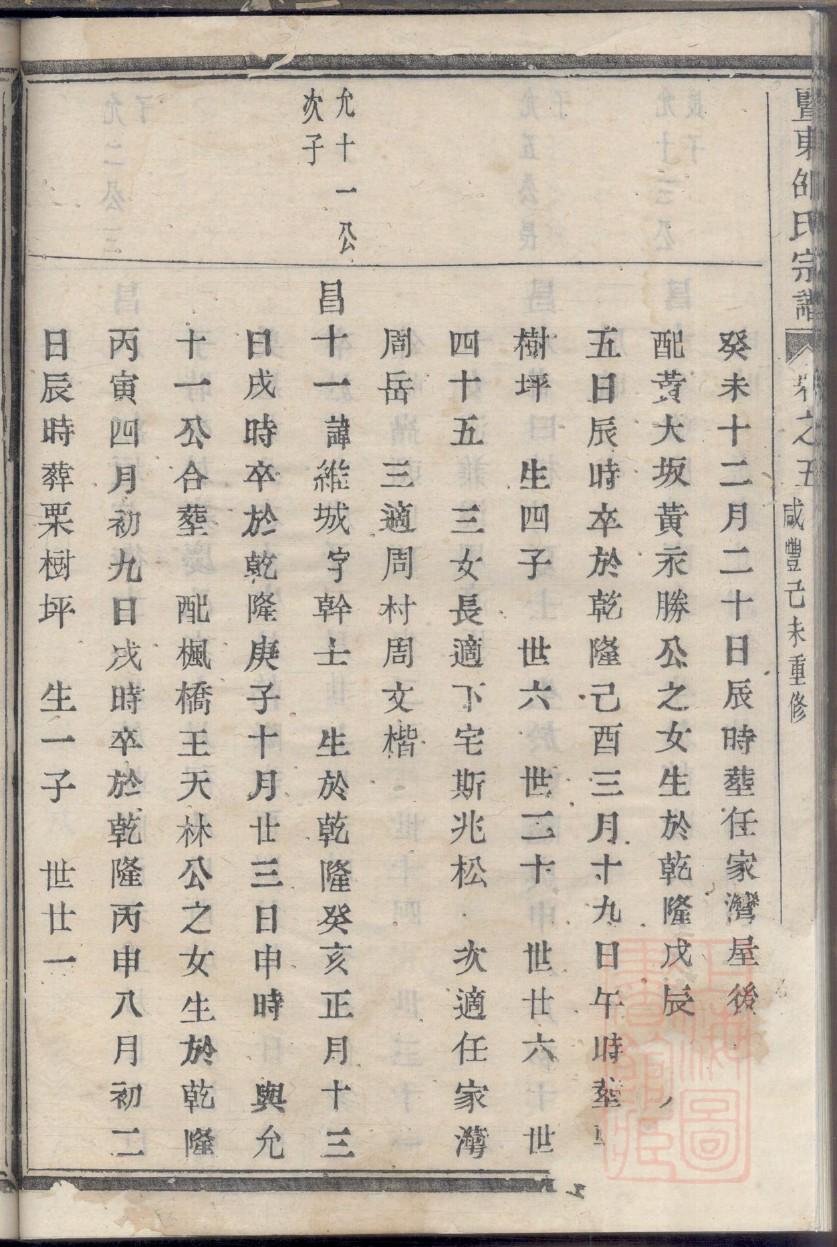 暨東邵氏宗譜 卷之五 咸豐己未重修
癸未十二月二十日辰時塟任家灣屋後
配黃大坂黃永勝公之女生於乾隆戊辰
五日辰時卒於乾隆己酉三月十九日午時塟
樹坪 生四子 世六 世二十 世廿六 世
四十五 三女長適下宅斯兆松 次適任家灣
周岳 三適周村周文楷
允十一公
次子
昌十一諱維城字幹士 生於乾隆癸亥正月十三
日戌時卒於乾隆庚子十月廿三日申時 與允
十一公合塟 配楓橋王天林公之女生於乾隆
丙寅四月初九日戌時卒於乾隆丙申八月初二
日辰時葬栗樹坪 生一子 世廿一
上海圖
書館藏